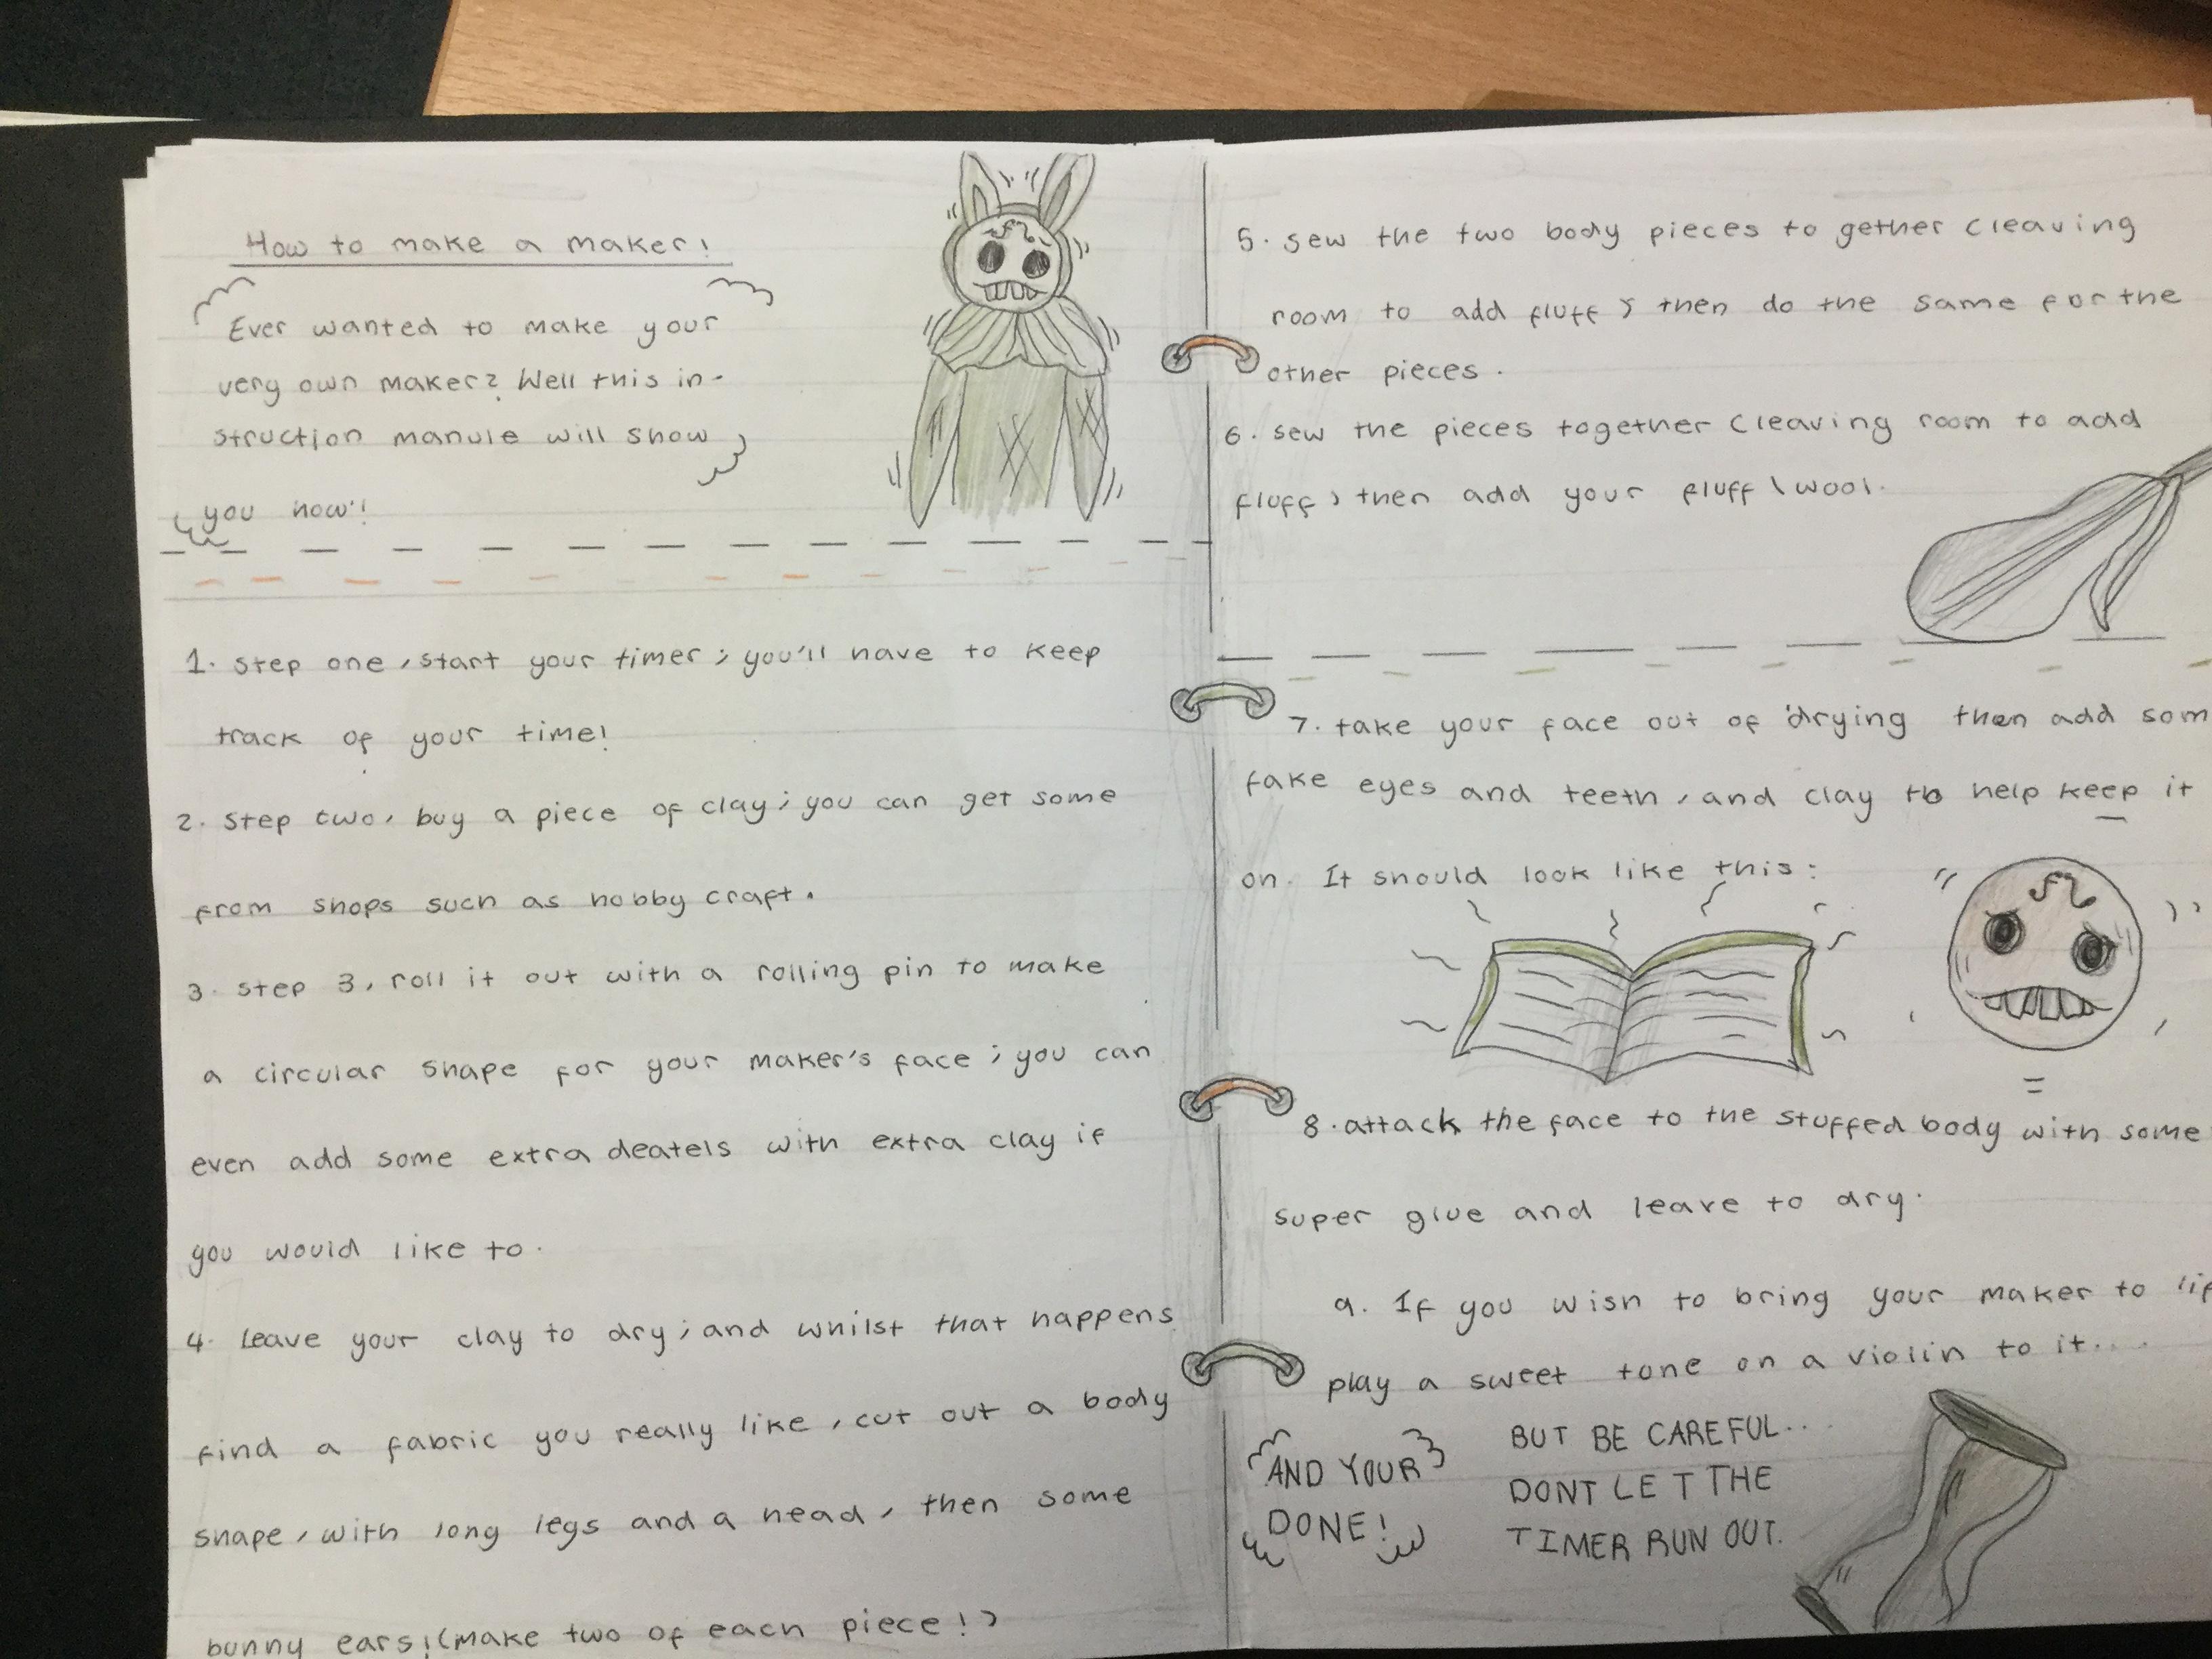 How to make a maker!
Ever wanted to make your
very own maker? Well this in-
struction manule will show
you how!
1. Step one, start your timer; you'll have to keep
track of your time!
2. Step two, buy a piece of clay; you can get some
from shops such as hobby craft.
3. Step 3, roll it out with a rolling pin to make
a circular shape for your maker's face; you can
even add some extra deatels with extra clay if
you would like to.
4. Leave your clay to dry; and whilst that happens
find a fabric you really like, cut out a body
shape, with long legs and a head, then some
bunny ears! (make two of each piece!)
5. sew the two body pieces to gether (leaving
room to add fluff) then do the same for the
other pieces.
6. sew the pieces together (leaving room to add
fluff) then add your fluff \ wool.
7. take your face out of drying then add som
fake eyes and teeth, and clay to help keep it
on. It should look like this:
8. attack the face to the stuffed body with some
super glue and leave to dry.
9. If you wish to bring your maker to lif
play a sweet tone on a violin to it....
AND YOUR
DONE!
BUT BE CAREFUL...
DONT LET THE
TIMER RUN OUT.